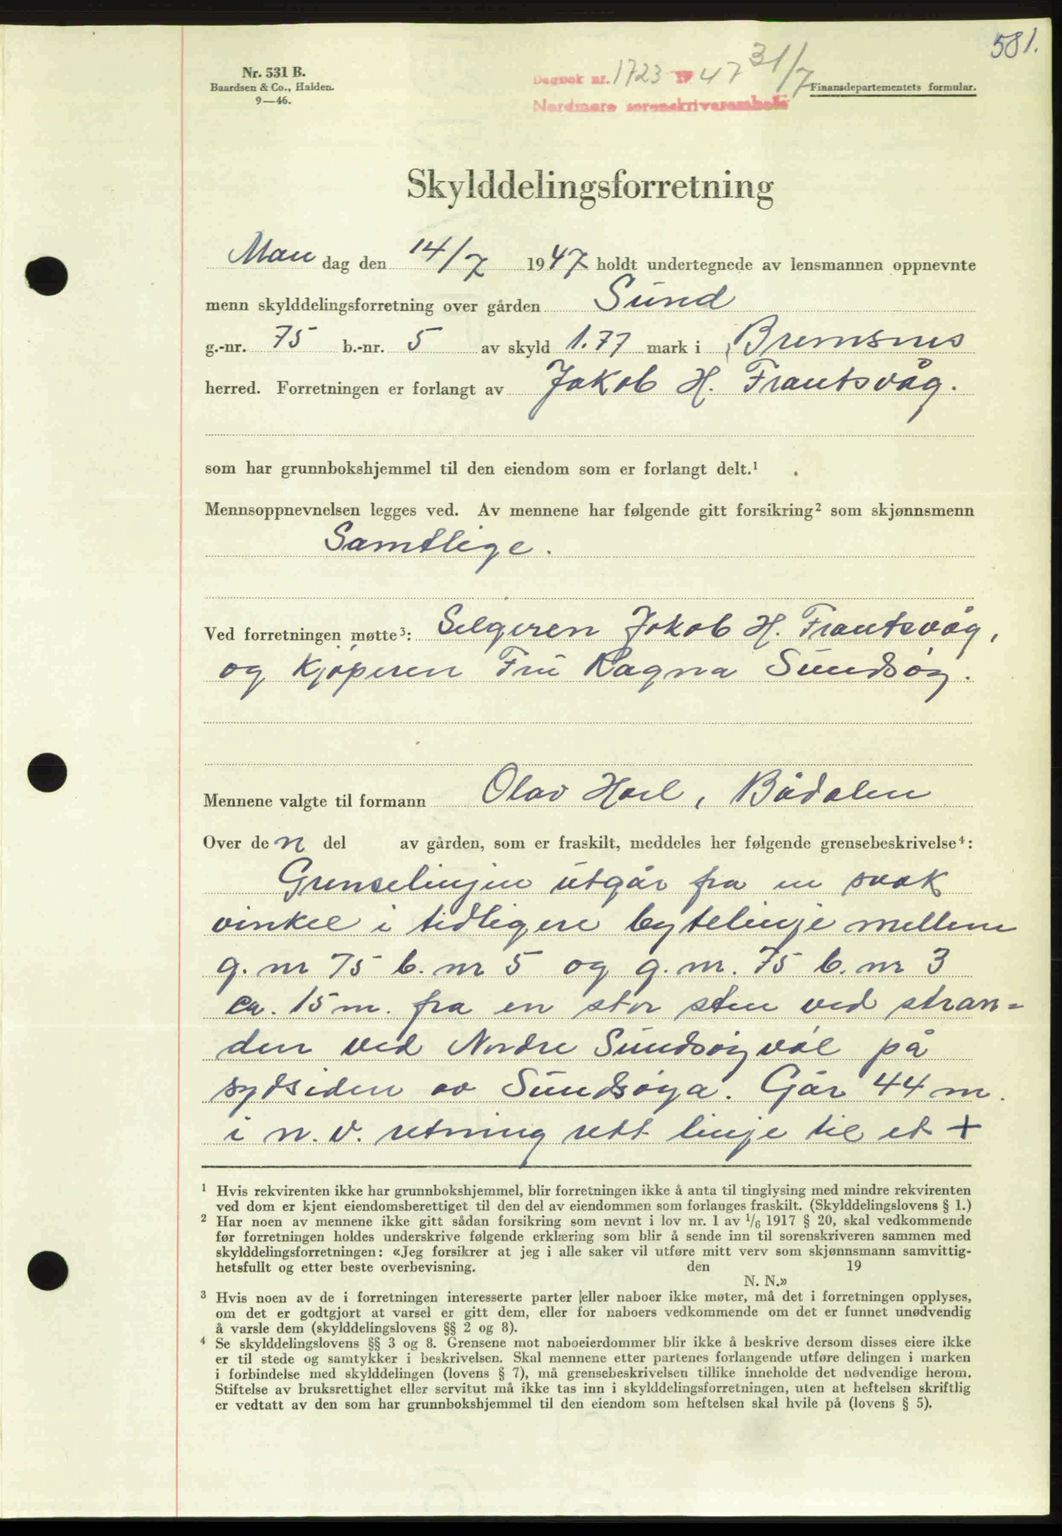 581.
Nr. 531 B.
Baardsen & Co., Halden.
9—46.
Dagbok nr. 1723 1947 31/7
Nordmøre sorenskriverembete
Finansdepartementets formular.
Skylddelingsforretning
Man dag den 14/7 1947 holdt undertegnede av lensmannen oppnevnte
menn skylddelingsforretning over gården Sund
g.-nr. 75 b.-nr. 5 av skyld 1.77 mark i Bremsnes
herred. Forretningen er forlangt av Jakob H. Frantsvåg.
som har grunnbokshjemmel til den eiendom som er forlangt delt.¹
Mennsoppnevnelsen legges ved. Av mennene har følgende gitt forsikring² som skjønnsmenn
Samtlige.
Ved forretningen møtte³: Selgeren Jakob H. Frantsvåg,
og kjøperen Fru Ragna Sundsøy.
Mennene valgte til formann Olav Hoel, Bådalen
Over de n del av gården, som er fraskilt, meddeles her følgende grensebeskrivelse⁴:
Grenselinjen utgår fra en svak
vinkel i tidligere bytelinje mellem
g. nr 75 b. nr 5 og g. nr. 75 b. nr 3
ca. 15 m. fra en stor sten ved stran=
den ved Nordre Sundsøyvål på
sydsiden av Sundsøya. Går 44 m.
i n. v. retning rett linje til et +
¹ Hvis rekvirenten ikke har grunnbokshjemmel, blir forretningen ikke å anta til tinglysing med mindre rekvirenten
ved dom er kjent eiendomsberettiget til den del av eiendommen som forlanges fraskilt. (Skylddelingslovens § 1.)
² Har noen av mennene ikke gitt sådan forsikring som nevnt i lov nr. 1 av 1/6 1917 § 20, skal vedkommende
før forretningen holdes underskrive følgende erklæring som blir å sende inn til sorenskriveren sammen med
skylddelingsforretningen: «Jeg forsikrer at jeg i alle saker vil utføre mitt verv som skjønnsmann samvittig-
hetsfullt og etter beste overbevisning. den 19
N. N.»
³ Hvis noen av de i forretningen interesserte parter eller naboer ikke møter, må det i forretningen opplyses,
om det er godtgjort at varsel er gitt dem, eller for naboers vedkommende om det er funnet unødvendig
å varsle dem (skylddelingslovens §§ 2 og 8).
⁴ Se skylddelingslovens §§ 3 og 8. Grensene mot naboeierdommer blir ikke å beskrive dersom disses eiere ikke
er til stede og samtykker i beskrivelsen. Skal mennene etter partenes forlangende utføre delingen i marken
i forbindelse med skylddelingen (lovens § 7), må grensebeskrivelsen tillike inneholde det nødvendige herom.
Stiftelse av bruksrettighet eller servitut må ikke tas inn i skylddelingsforretningen, uten at heftelsen skriftlig
er vedtatt av den som har grunnbokshjemmel til den eiendom som heftelsen skal hvile på (lovens § 5).